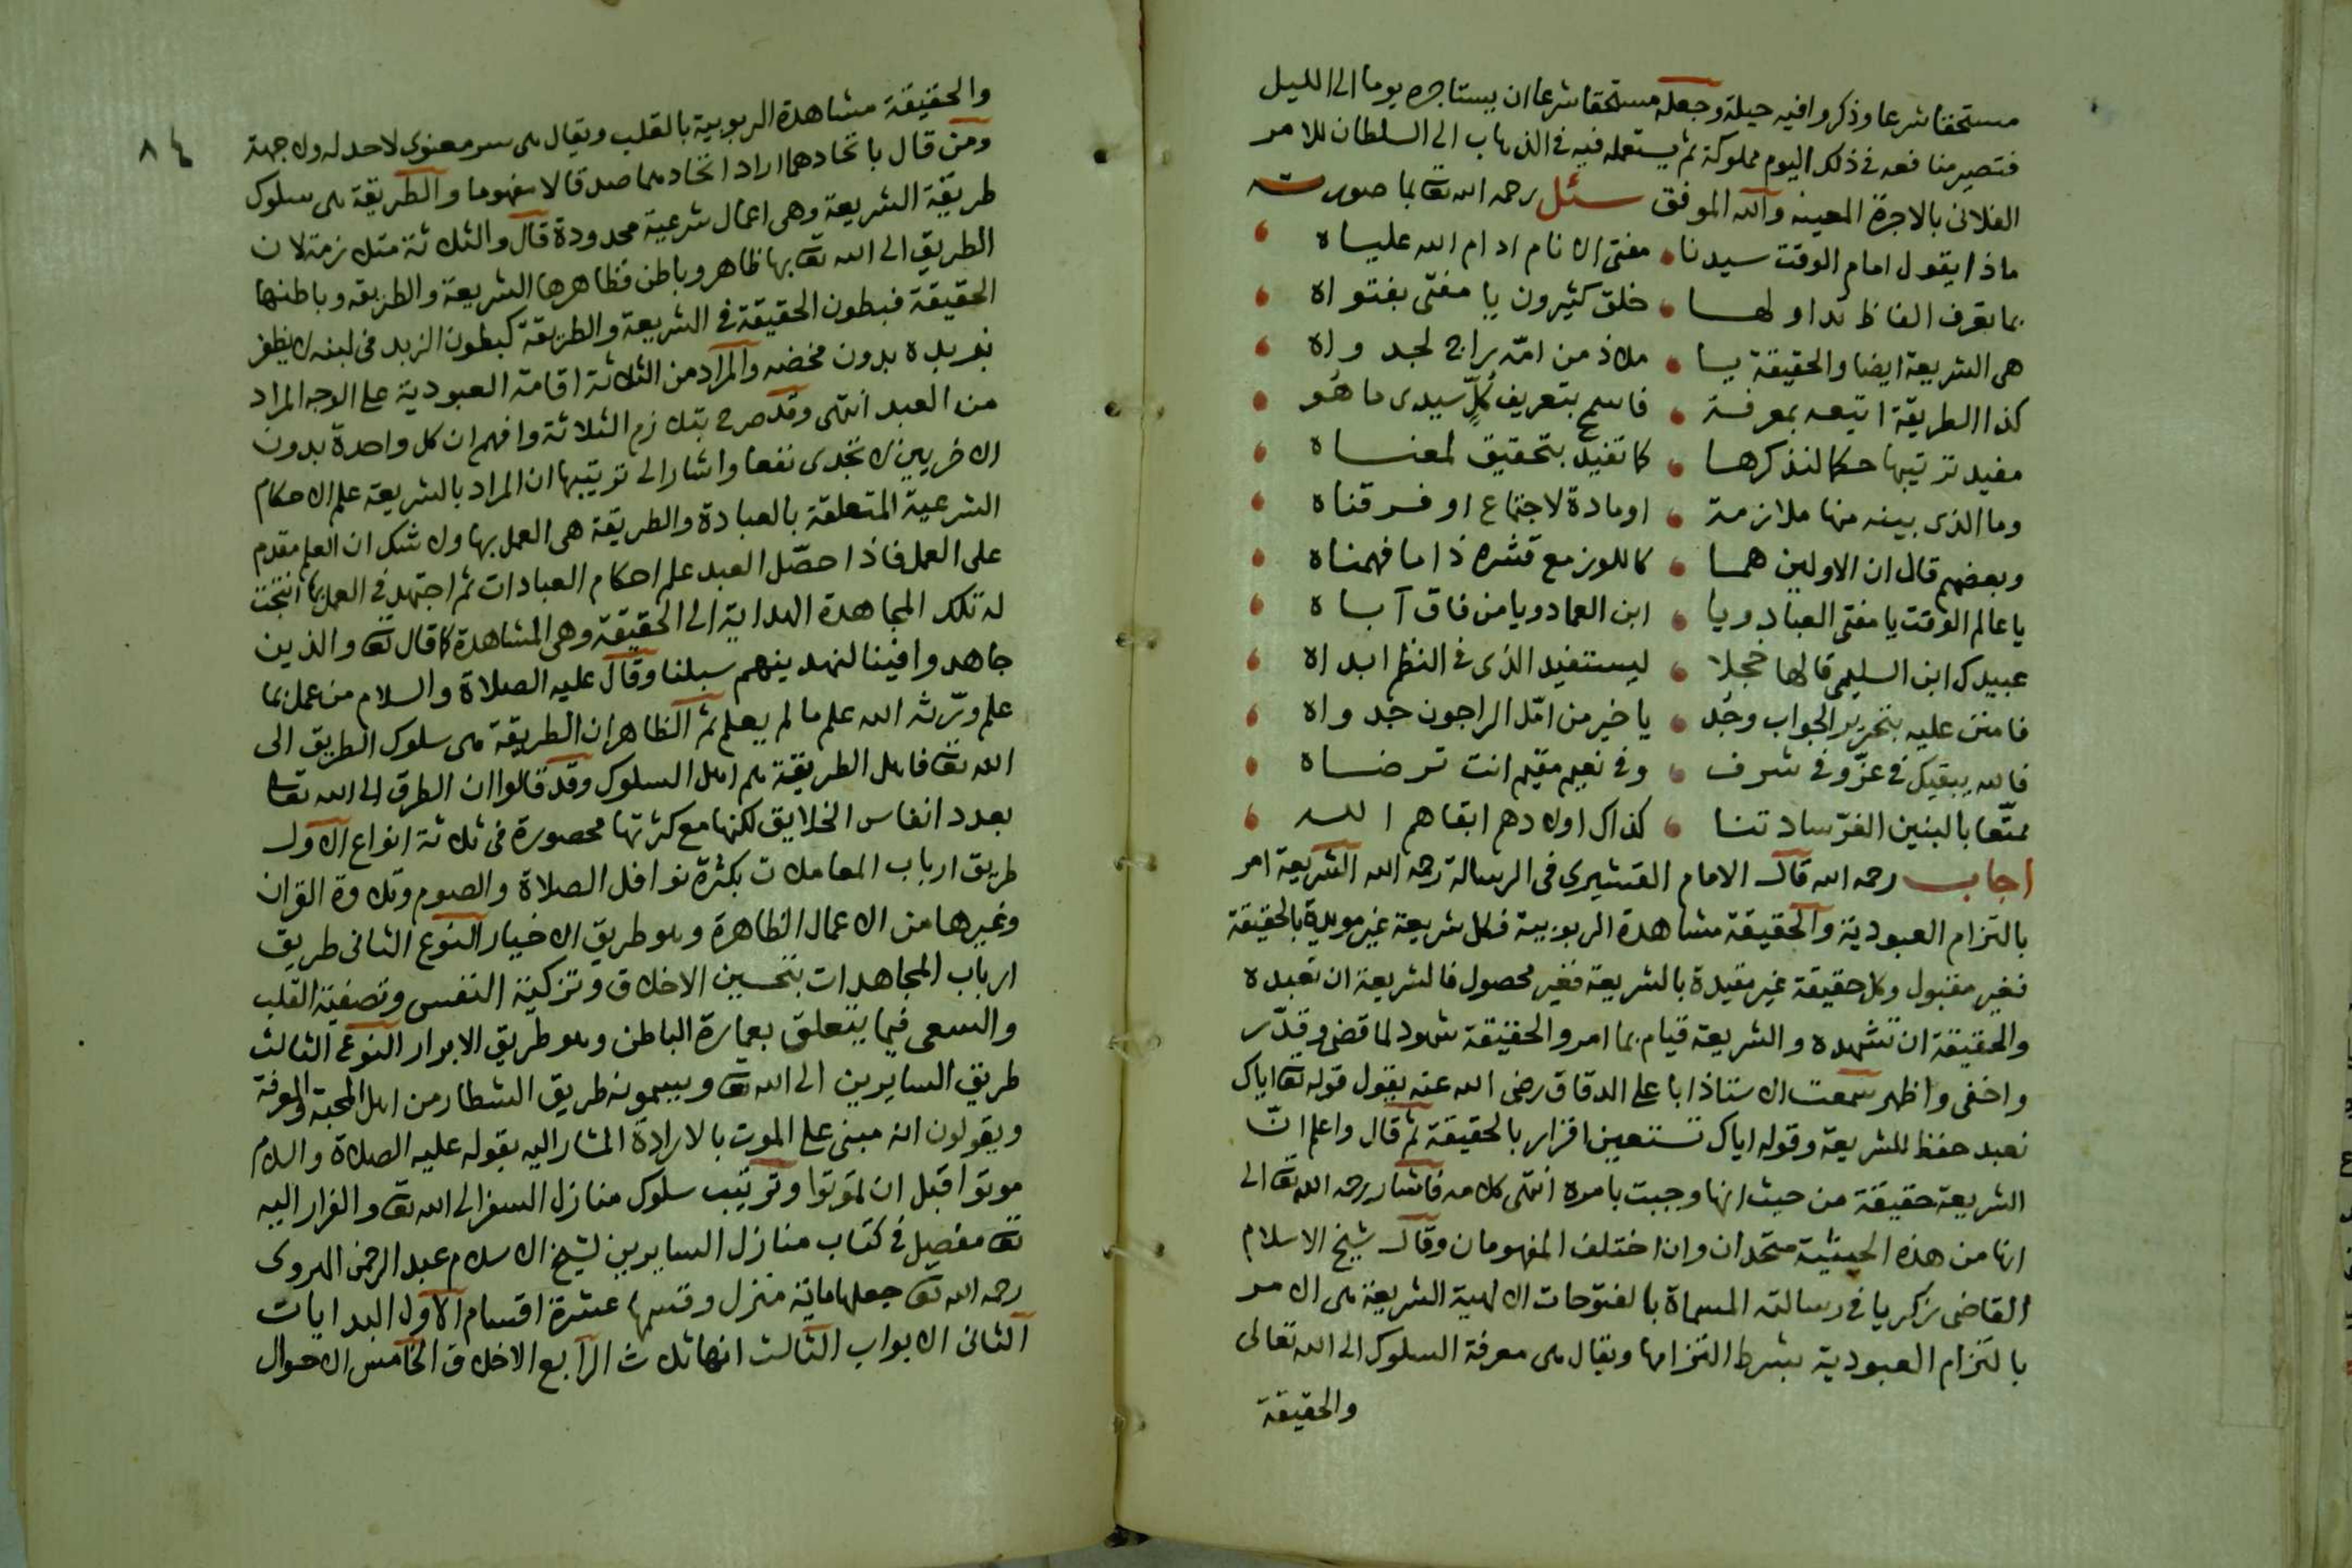 مستحقا شرعا وذكروا فيه حيلة وجعله مستحقا شرعا ان يستاجره يوما الى الليل
فتصير منافعه في ذلك اليوم مملوكة ثم يستعمله فيه في الذهاب الى السلطان للامر
الفلانى بالاجرة المعينه والله الموفق سئل رحمه الله تعا بما صورته
ماذا يقول امام الوقت سيدنا مفتى الانام ادام الله علياه
بما تعرف الفاظ تداولها خلق كثيرون يا مفتى بفتواه
هى الشريعة ايضا والحقيقة يا ملاذ من امّه راج لجدواه
كذا الطريقة اتبعه بمعرفة فاسمح بتعريف كلٍّ سيدى ما هو
مفيد ترتيبها حكما لنذكرها كما تفيد بتحقيق لمعناه
وما الذى بينه منها ملازمة او مادة لاجتماع او فرقناه
وبعضهم قال ان الاولين هما كاللوز مع قشره ذا ما فهمناه
يا عالم الوقت يا مفتى العباد ويا ابن العماد ويا من فاق آباه
عبيدك ابن السليمى قالها خجلا ليستفيد الذى في النظم ابداه
فامنن عليه بتحرير الجواب وجُد يا خير من امّل الراجون جدواه
فالله يبقيك في عزّ وفى شرف وفى نعيم مقيم انت ترضاه
ممتّعا بالبنين الغرّ سادتنا كذاك اولادهم ابقاهم الله
اجاب رحمه الله قال الامام القشيري فى الرسالة رحمه الله الشريعة امر
بالتزام العبودية والحقيقة مشاهدة الربوبية فكل شريعة غير مويدة بالحقيقة
فغير مقبول وكل حقيقة غير مقيدة بالشريعة فغير محصول فالشريعة ان تعبده
والحقيقة ان تشهده والشريعة قيام بما امر والحقيقة شهود لما قضى وقدّر
واخفى واظهر سمعت الاستاذ ابا على الدقاق رضى الله عنه يقول قوله تعا اياك
نعبد حفظ للشريعة وقوله اياك نستعين اقرار بالحقيقة ثم قال واعلم انّ
الشريعة حقيقة من حيث انها وجبت بامره انتهى كلامه فاشار رحمه الله تعا الى
انها من هذه الحيثية متحدان وان اختلف المفهومان وقال شيخ الاسلام
القاضى زكريا في رسالته المسماة بالفتوحات الالهية الشريعة هى الامر
بالتزام العبودية بشرط التزامها ويقال هى معرفة السلوك الى الله تعالى
والحقيقة
٨٤
والحقيقة مشاهدة الربوبية بالقلب ويقال هى سر معنوى لاحد له ولا جهة
ومن قال باتحادهما اراد اتحادهما صدقا لا مفهوما والطريقة هى سلوك
طريقة الشريعة وهى اعمال شرعية محدودة قال والثلاثة متلازمة لان
الطريق الى الله تعا بها ظاهر وباطن فظاهرها الشريعة والطريقه وباطنها
الحقيقة فبطون الحقيقة في الشريعة والطريقة كبطون الزبد فى لبنه لا يظفر
بزبده بدون مخضه والمراد من الثلاثة اقامة العبودية على الوجه المراد
من العبد انتهى وقد صرح بتلازم الثلاثة وافهم ان كل واحدة بدون
الاخريين لا تجدى نفعا واشار الى ترتيبها ان المراد بالشريعة علم الاحكام
الشرعية المتعلقة بالعبادة والطريقة هى العمل بها ولا شك ان العلم مقدم
على العمل فاذا حصّل العبد علم احكام العبادات ثم اجتهد في العمل بها انتجت
له تلك المجاهدة الهداية الى الحقيقة وهى المشاهدة كما قال تعا والذين
جاهدوا فينا لنهدينهم سبلنا وقال عليه الصلاة والسلام من عمل بما
علم ورّثه الله علم ما لم يعلم ثم الظاهر ان الطريقة هى سلوك الطريق الى
الله تعا فاهل الطريقة هم اهل السلوك وقد قالوا ان الطرق الى الله تعا
بعدد انفاس الخلايق لكنها مع كثرتها محصورة فى ثلاثة انواع الاول
طريق ارباب المعاملات بكثرة نوافل الصلاة والصوم وتلاوة القران
وغيرها من الاعمال الظاهرة وهو طريق الاخيار النوع الثانى طريق
ارباب المجاهدات بتحسين الاخلاق وتزكية النفس وتصفية القلب
والسعى فيما يتعلق بعمارة الباطن وهو طريق الابرار النوع الثالث
طريق السايرين الى الله تعا ويسمونه طريق الشطار من اهل المحبة والمعرفة
ويقولون انه مبنى على الموت بالارادة المشار اليه بقوله عليه الصلاة والسلام
موتوا قبل ان تموتوا وترتيب سلوك منازل السفر الى الله تعا والفرار اليه
تعا مفصل في كتاب منازل السايرين لشيخ الاسلام عبد الرحمن الهروى
رحمه الله تعا جعلها ماية منزل وقسمها عشرة اقسام الاول البدايات
الثانى الابواب الثالث المعاملات الرابع الاخلاق الخامس الاحوال